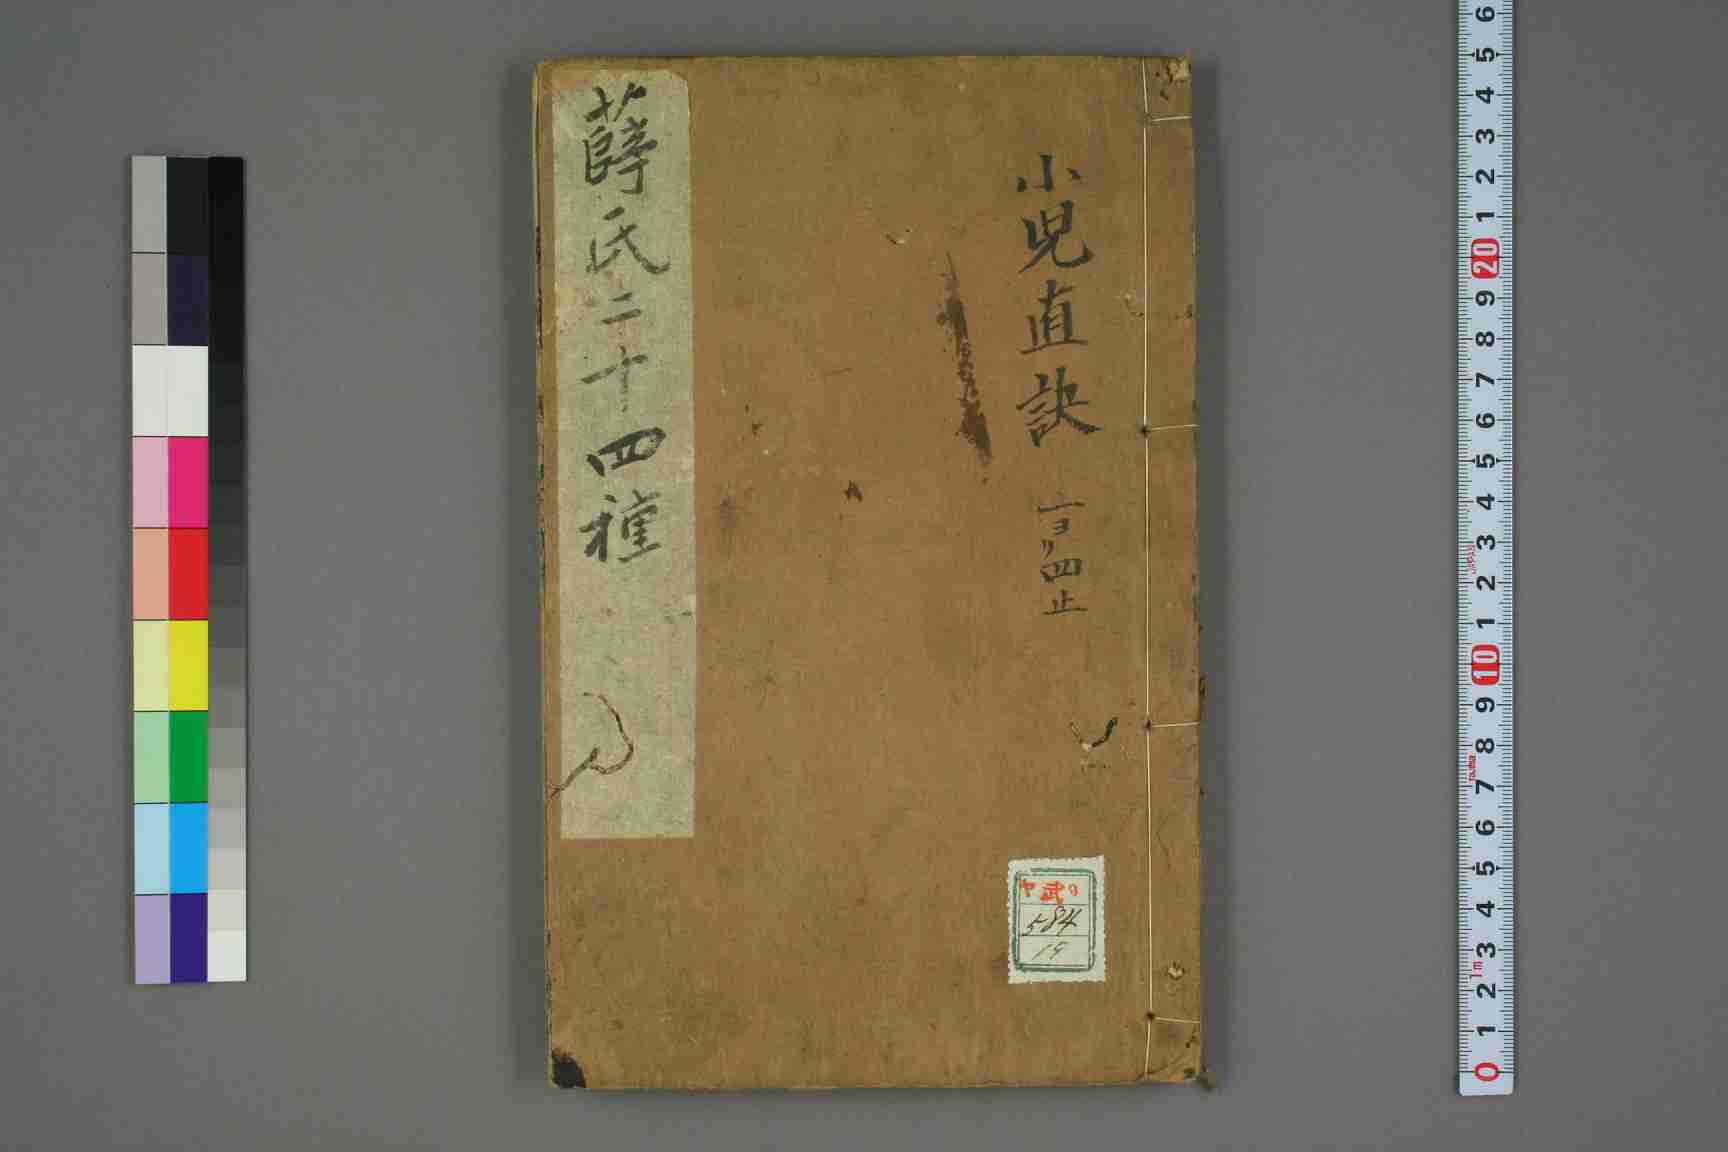 小児直訣
一ヨリ四止
薛氏二十四種
武
584
19
6 5 4 3 2 1 20 9 8 7 6 5 4 3 2 1 10 9 8 7 6 5 4 3 2 1 0
JAPAN
1m